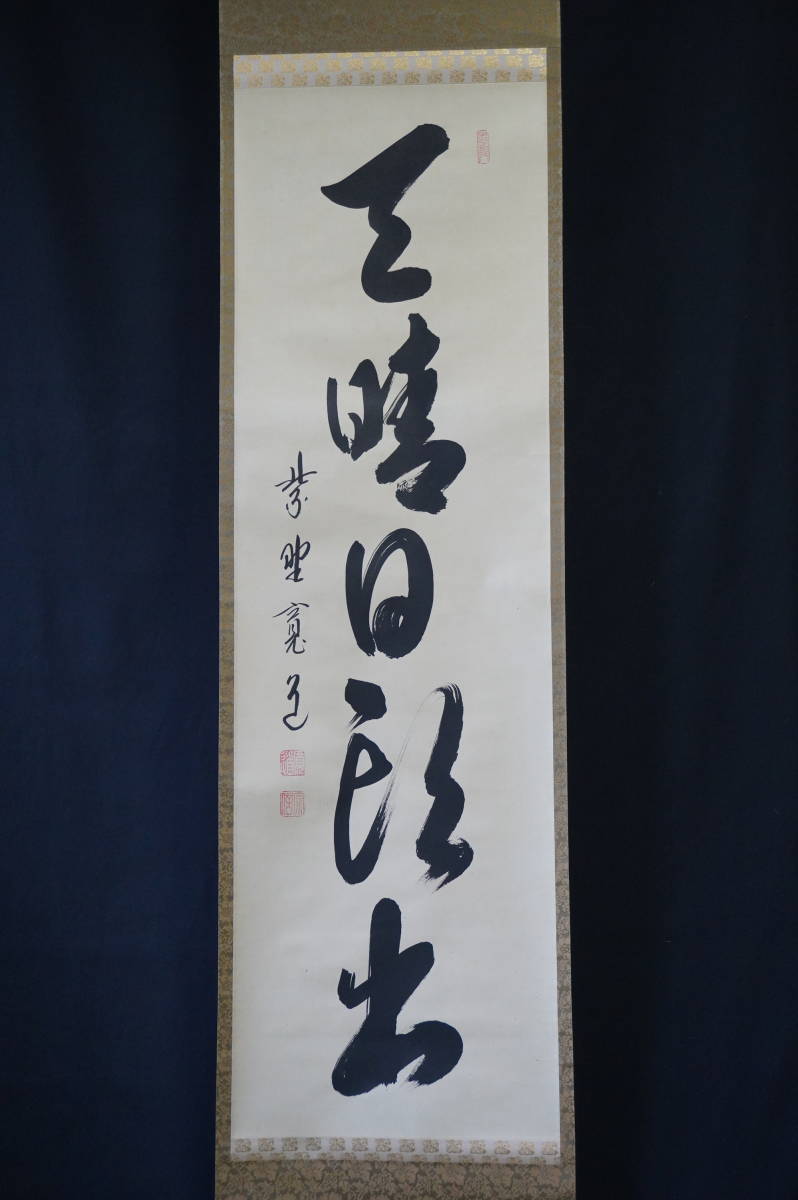 天晴日頭出
紫野寛道